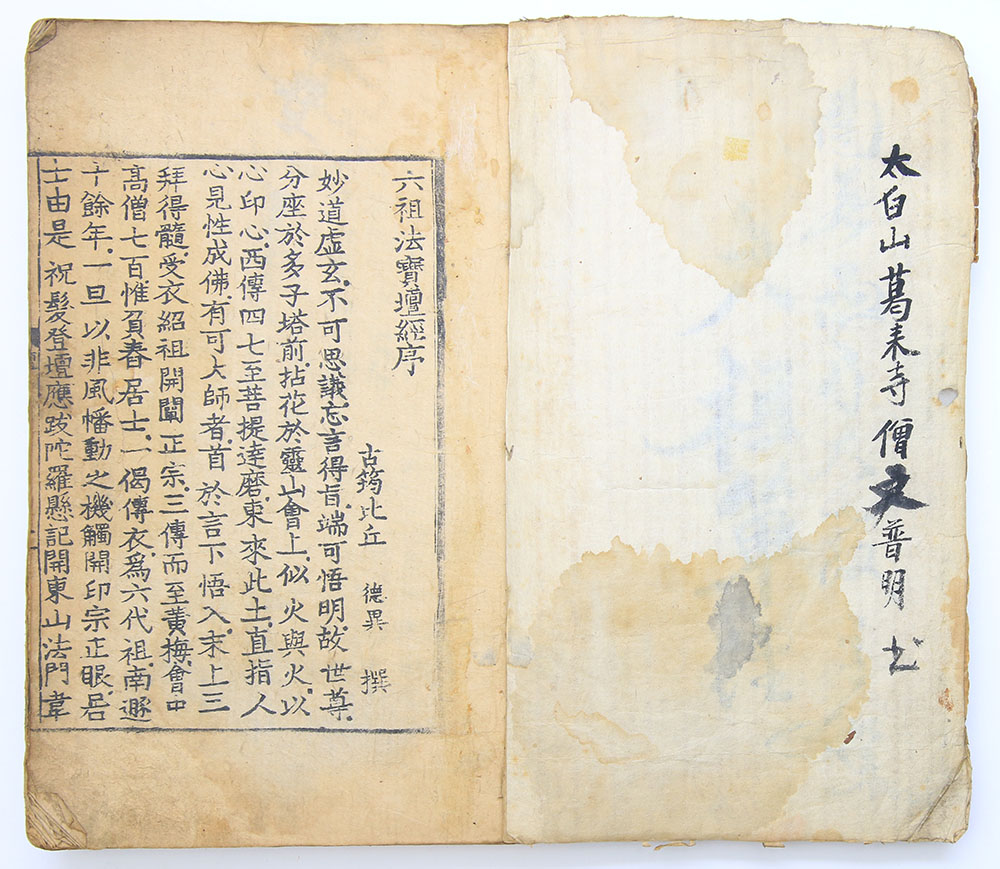 太白山葛来寺僧普明 书
六祖法寶壇經序
古筠比丘 德異 撰
妙道虛玄不可思議忘言得旨端可悟明故世尊
分座於多子塔前拈花於靈山會上似火與火以
心印心西傳四七至菩提達磨東來此土直指人
心見性成佛有可大師者首於言下悟入末上三
拜得髓受衣紹祖開闡正宗三傳而至黃梅會中
高僧七百惟負舂居士一偈傳衣爲六代祖南遯
十餘年一旦以非風幡動之機觸開印宗正眼居
士由是祝髮登壇應跋陀羅懸記開東山法門韋